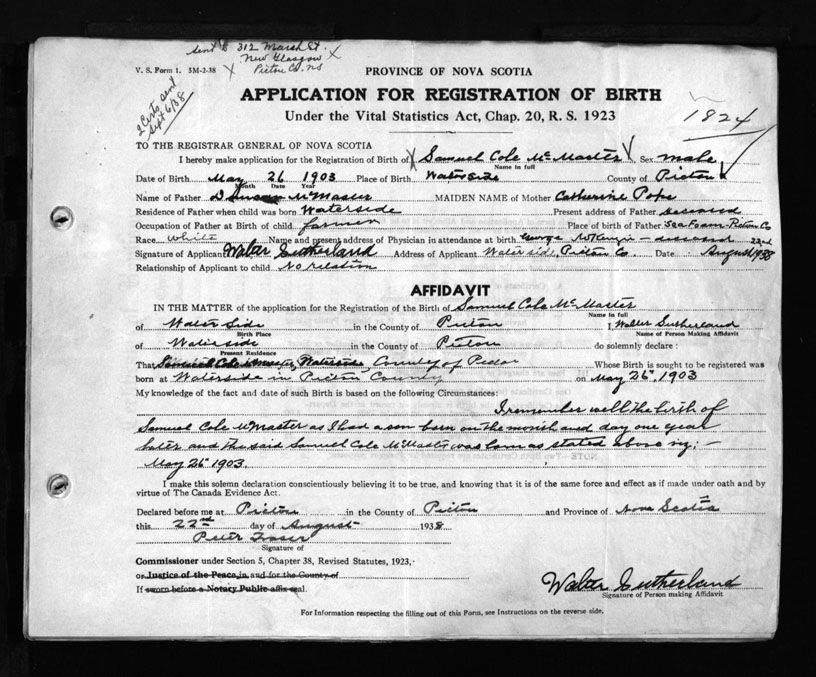 sent to 312 Marsh St. X
New Glasgow
V. S. Form 1. 5M-2-38 X Pictou Co. NS
2 Certs sent
Sept 6/38
PROVINCE OF NOVA SCOTIA
APPLICATION FOR REGISTRATION OF BIRTH
Under the Vital Statistics Act, Chap. 20, R. S. 1923
1824
TO THE REGISTRAR GENERAL OF NOVA SCOTIA
I hereby make application for the Registration of Birth of Samuel Cole McMaster Sex male
Name in full
Date of Birth May 26 1903 Place of Birth Waterside County of Pictou
Month Date Year
Name of Father McMaster MAIDEN NAME of Mother Catherine Pope
Residence of Father when child was born Waterside Present address of Father deceased
Occupation of Father at Birth of child farmer Place of birth of Father Seafoam Pictou Co
Race white Name and present address of Physician in attendance at birth George McKenzie deceased
Signature of Applicant Walter Sutherland Address of Applicant Waterside, Pictou Co. Date 22nd August 1938
Relationship of Applicant to child No relation
AFFIDAVIT
IN THE MATTER of the application for the Registration of the Birth of Samuel Cole McMaster
Name in full
of Water Side in the County of Pictou I, Walter Sutherland
Birth Place Name of Person Making Affidavit
of Waterside in the County of Pictou do solemnly declare :
Present Residence
That Samuel Cole McMaster, Waterside County of Pictou Whose Birth is sought to be registered was
born at Waterside in Pictou County on May 26, 1903
My knowledge of the fact and date of such Birth is based on the following Circumstances:
I remember well the birth of
Samuel Cole McMaster as I had a son born on the month and day one year
later and the said Samuel Cole McMaster was born as stated above viz; –
May 26 1903.
I make this solemn declaration conscientiously believing it to be true, and knowing that it is of the same force and effect as if made under oath and by
virtue of The Canada Evidence Act.
Declared before me at Pictou in the County of Pictou and Province of Nova Scotia
this 22nd day of August 1938
Peter Fraser
Signature of
Commissioner under Section 5, Chapter 38, Revised Statutes, 1923,
or Justice of the Peace, in and for the County of
If sworn before a Notary Public affix seal.
Walter Sutherland
Signature of Person making Affidavit
For Information respecting the filling out of this Form, see Instructions on the reverse side.